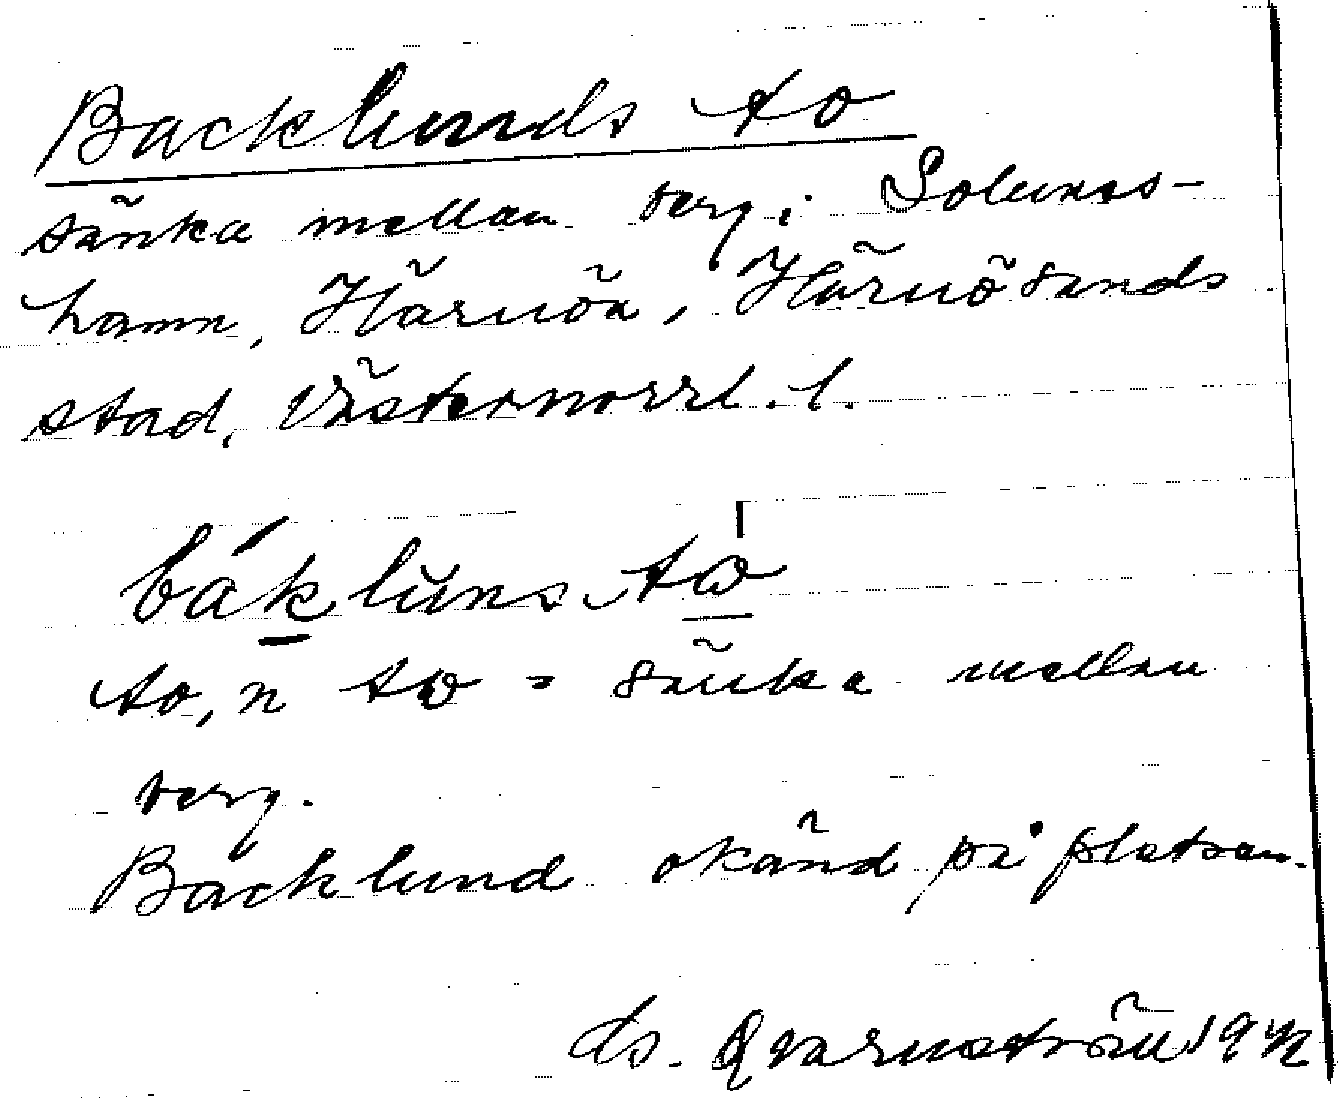 Backlunds to
sänka mellan berg i Solums-
hamn, Härnön, Härnösands
stad, Västernorrl. l.
to, n = sänka mellan
berg.
Backlund okänd på platsen.
Qvarnström 1942